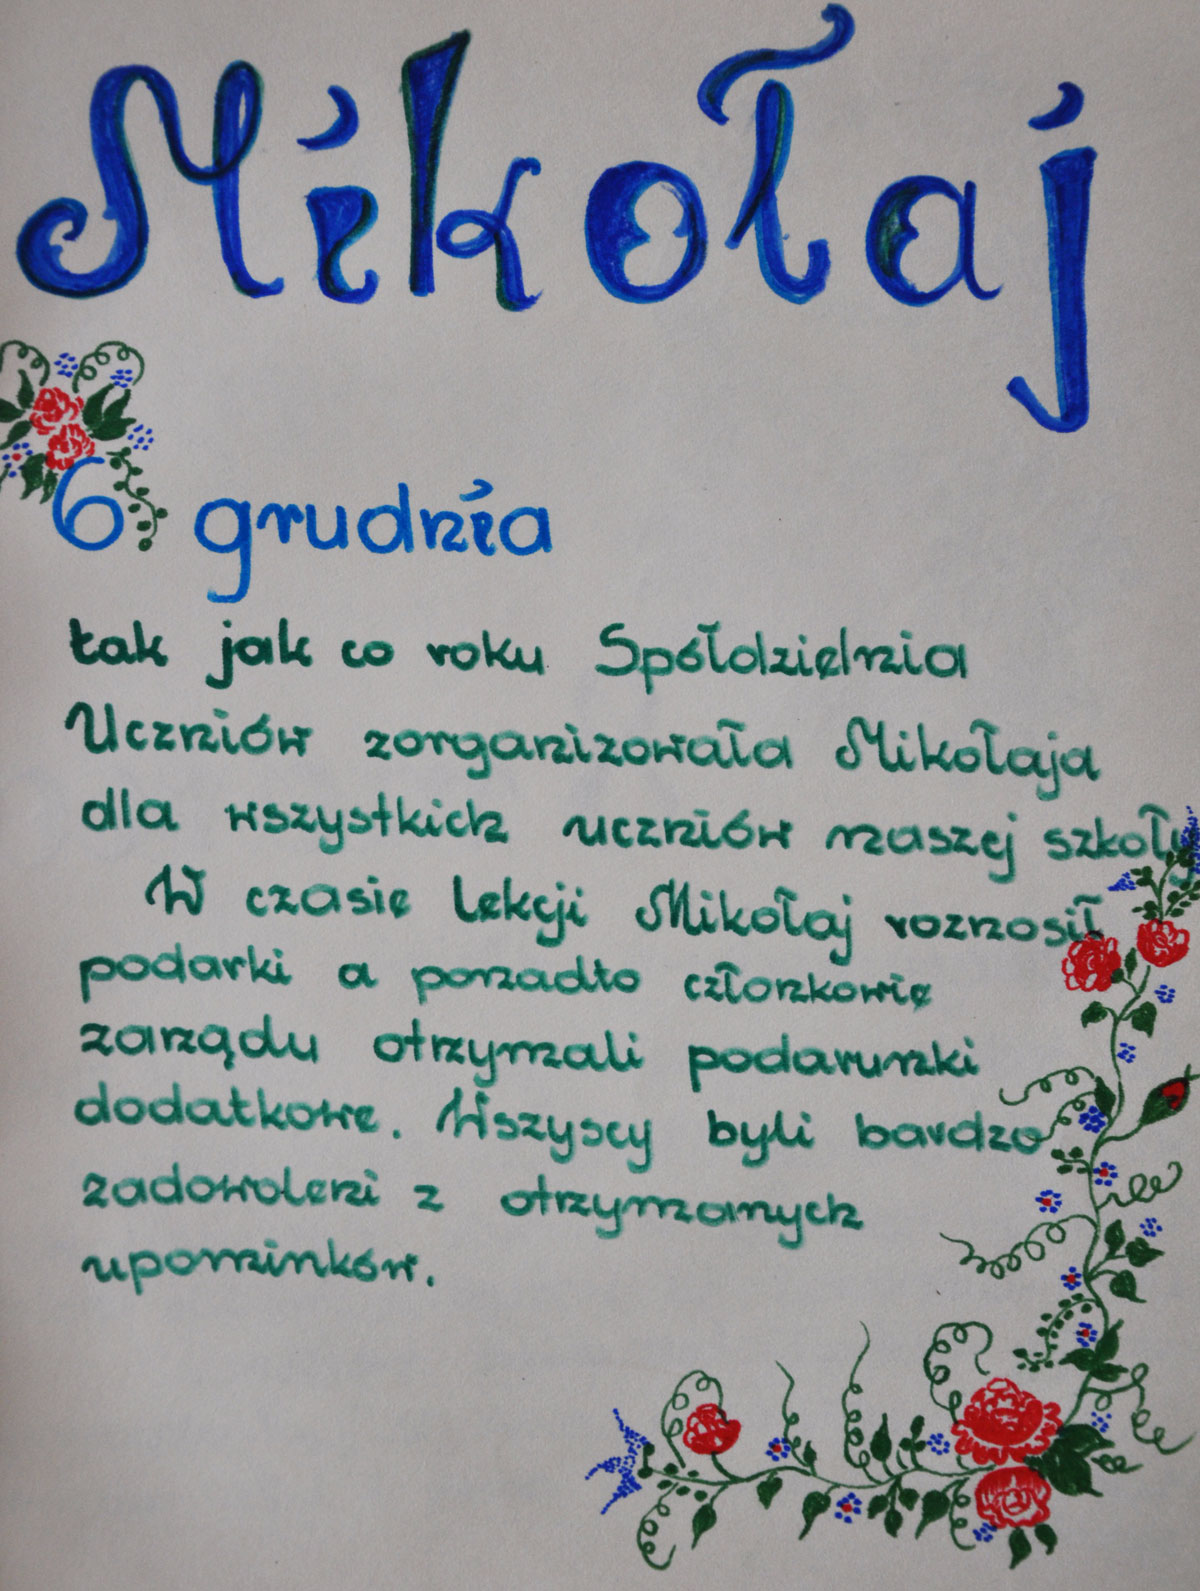 Mikołaj
6 grudnia
tak jak co roku Spółdzielnia
Uczniów zorganizowała Mikołaja
dla wszystkich uczniów naszej szkoły
W czasie lekcji Mikołaj roznosił
podarki a ponadto członkowie
zarządu otrzymali podarunki
dodatkowe. Wszyscy byli bardzo
zadowoleni z otrzymanych
upominków.